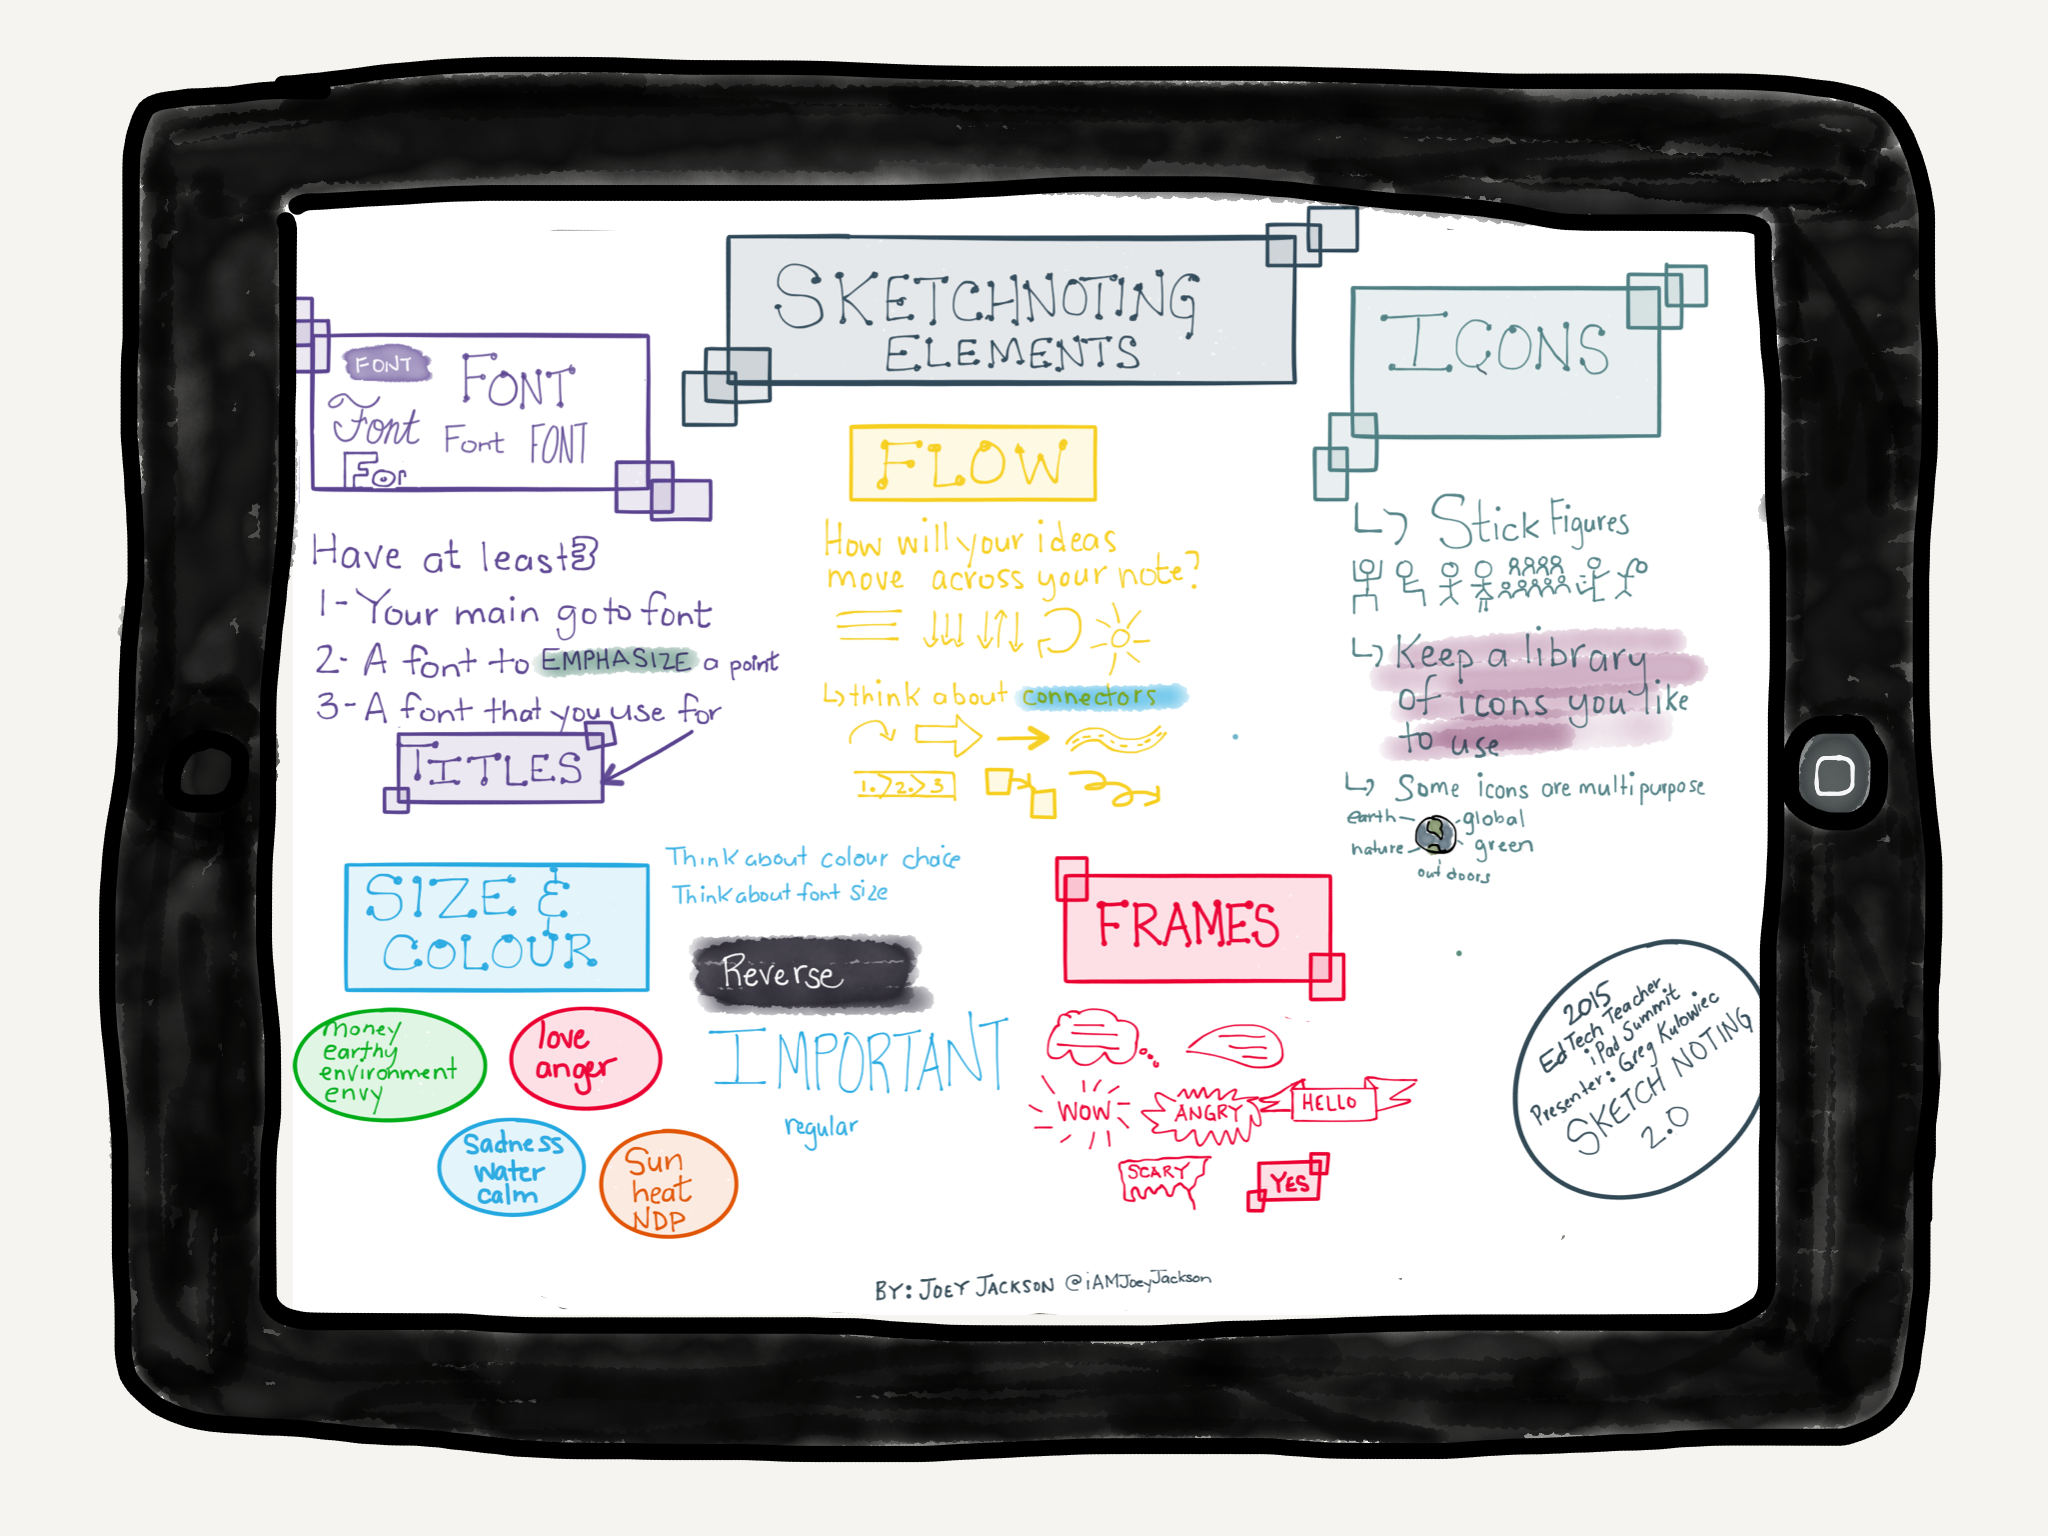 SKETCHNOTING
ELEMENTS
FONT
FONT
Font
Font
FONT
For
Have at least 3
1- Your main go to font
2- A font to EMPHASIZE a point
3- A font that you use for
TITLES
FLOW
How will your ideas
move across your note?
think about connectors
1. 2. 3
ICONS
Stick Figures
Keep a library
of icons you like
to use
Some icons are multipurpose
earth
global
nature
green
outdoors
SIZE &
COLOUR
Think about colour choice
Think about font size
Reverse
IMPORTANT
regular
money
earthy
environment
envy
love
anger
Sadness
water
calm
Sun
heat
NDP
FRAMES
WOW
ANGRY
HELLO
SCARY
YES
2015
EdTech Teacher
iPad Summit
Presenter: Greg Kulowiec
SKETCH NOTING
2.0
BY: JOEY JACKSON @iAMJoeyJackson